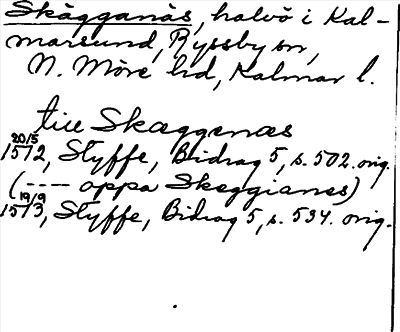 Skägganäs, halvö i Kal-
marsund, Ryssby sn,
N. Möre hd, Kalmar l.
till Skæggenæs
20/5 1512, Styffe, Bidrag 5, s. 502. orig.
(---- oppa Skeggianes)
19/9 1513, Styffe, Bidrag 5, s. 534. orig.